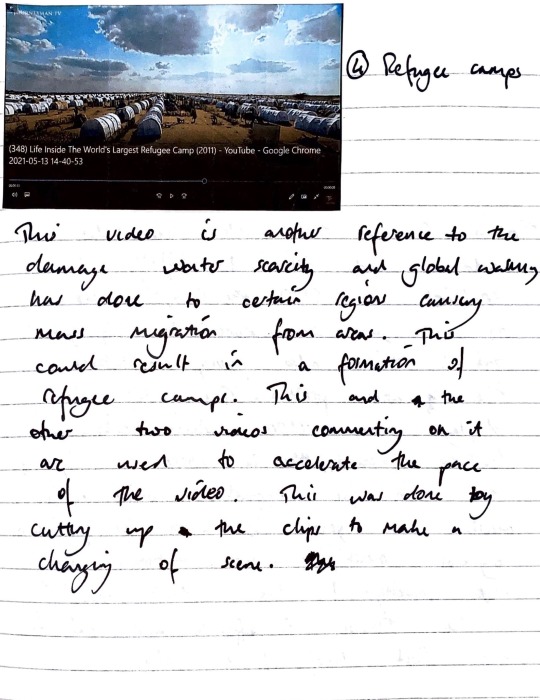 JOURNEYMAN TV
④ Refugee camps
(348) Life Inside The World's Largest Refugee Camp (2011) - YouTube - Google Chrome
2021-05-13 14-40-53
This video is another reference to the
damage water scarcity and global warming
has done to certain regions causing
mass migration from areas. This
could result in a formation of
refugee camps. This and the
other two videos commenting on it
are used to accelerate the pace
of the video. This was done by
cutting up the clips to make a
changing of scene.